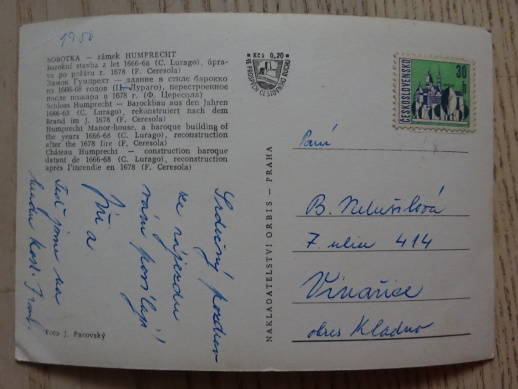 1968
SOBOTKA — zámek HUMPRECHT
Barokní stavba z let 1666-68 (C. Lurago), úpra-
va po požáru r. 1678 (F. Ceresola)
Замок Гумпрехт — здание в стиле барокко
из 1666-68 годов (Ц. Лураго), перестроенное
после пожара в 1678 г. (Ф. Цересола)
Schloss Humprecht — Barockbau aus den Jahren
1666-63 (C. Lurago), rekonstruiert nach dem
Brand im J. 1678 (F. Ceresola)
Humprecht Manor-house, a baroque building of
the years 1666-68 (C. Lurago), reconstruction
after the 1678 fire (F. Ceresola)
Château Humprecht — construction baroque
datant de 1666-68 (C. Lurago), reconstruction
après l'incendie en 1678 (F. Ceresola)
Srdečný pozdrav
ze zájezdu
vám posílají
Jiří a
Teď jsme na
hradu Kost.
Foto J. Pacovský
NAKLADATELSTVÍ ORBIS — PRAHA
Kčs 0,20
VE PROSPĚCH ČS. LIDOVÉHO
ČESKOSLOVENSKO
30
Paní
B.
7 ulice 414
Vinařice
okres Kladno